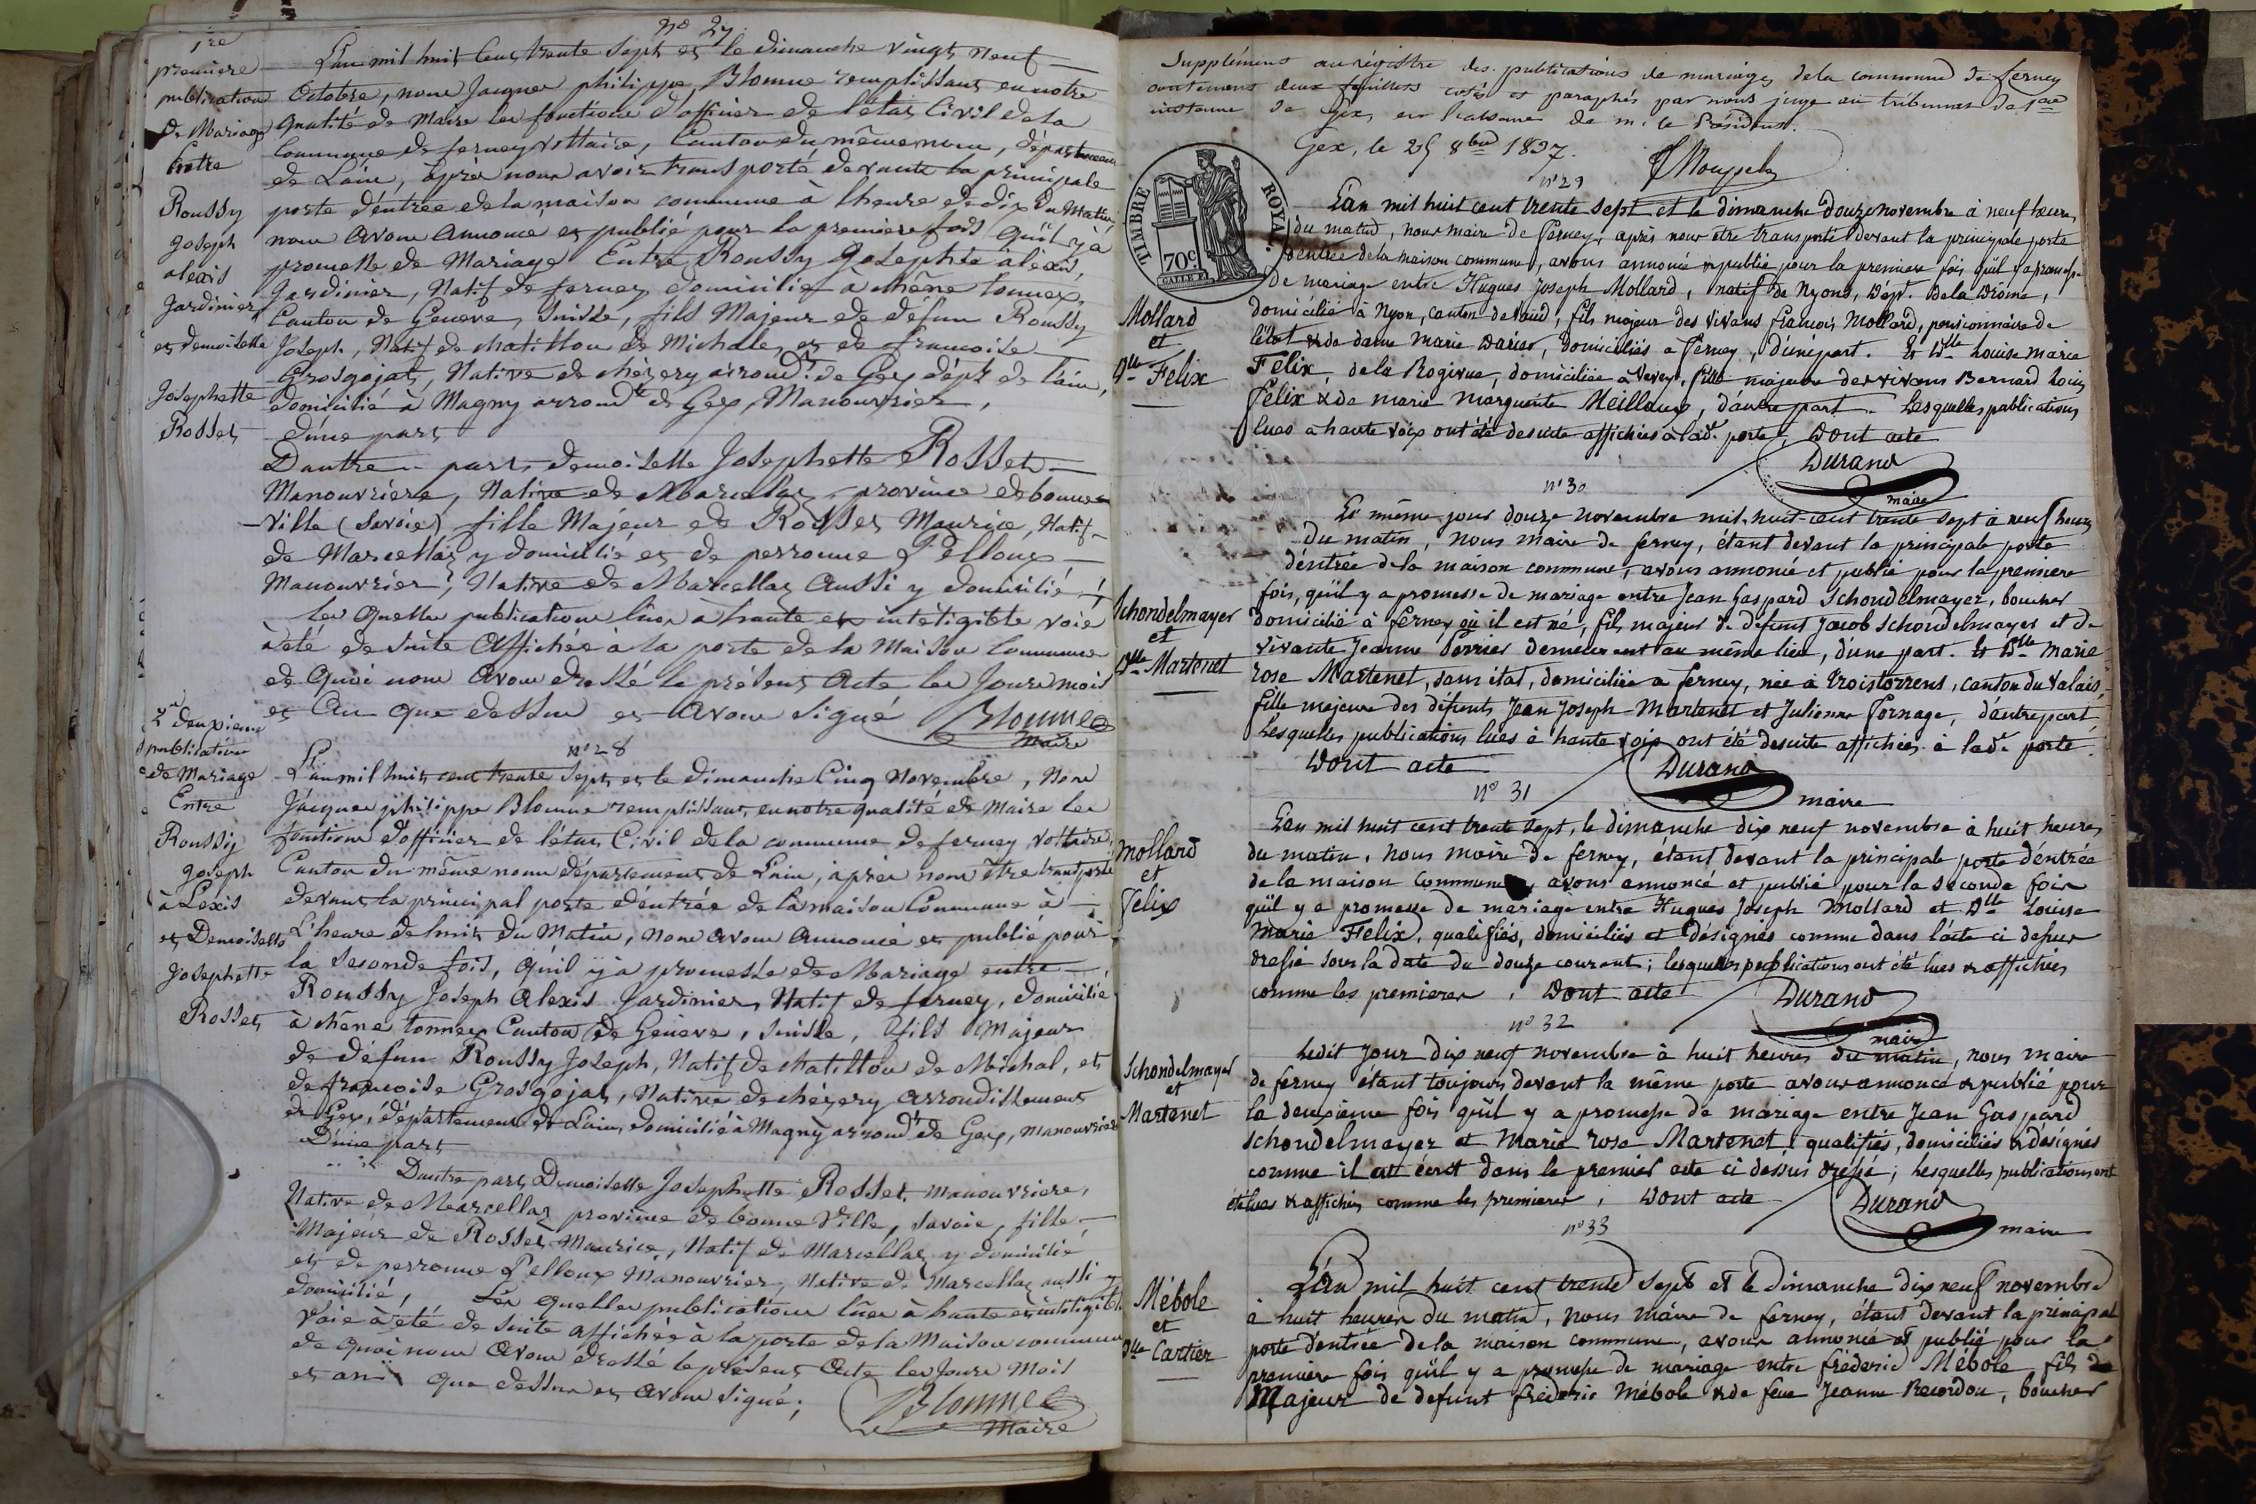 nº 27
1re
première
publication
De Mariage
Entre
Roussy
joseph
alexis
Jardinier
et demoiselle
Josephette
Rosset
L'an mil huit Cent trente Sept et le dimanche vingt neuf
Octobre, nous Jacques philippe Blonne remplissant en notre
qualité de Maire les fonctions d'officier de l'état Civil de la
Commune de ferney voltaire, Canton du même nom, département
de Lain, après nous avoir transporté devant la principale
porte d'entrée de la maison commune à l'heure de dix du Matin
nous avons annoncé et publié pour la première fois qu'il y à
promesse de Mariage Entre Roussy Joseph alexis,
Jardinier, Natif de ferney domicilié à chêne tonnex,
Canton de Geneve, Suisse, fils Majeur de défun Roussy
Joseph, Natif de chatillon de Michalle, et de francoise
Grosgojat, Native de chézery arrondt. de Gex dépt. de lain,
domicilié à Magny arrondt. de Gex, Manouvrier,
d'une part
Dautre part, demoiselle Josephette Rosset
Manouvrière, Native de Marcellaz province de bonne
ville (Savoie) fille Majeur de Rosset Maurice, Natif
de Marcellaz y domicilié, et de perronne Pelloux
Manouvrier, Native de Marcellaz aussi y domicilié,
les quelles publications lûes à haute et intéligible voie
à été de suite affichée à la porte de la Maison Commune
de quoi nous avons dressé le présent acte les Jours mois
et an que dessus et avons signé Blonne
Maire
2e deuxieme
publication
de Mariage
Entre
Roussy
joseph
alexis
et Demoiselle
Josephette
Rosset
nº 28
L'an mil huit cent trente Sept, et le dimanche Cinq Novembre, Nous
Jacques philippe Blonne remplissant, en notre qualité de Maire les
fonctions d'officier de l'état Civil de la commune de ferney voltaire,
Canton du même nom département de Lain, après nous être transporté
devant la principal porte d'entrée de la maison Commune à
L'heure de huit du Matin, nous avons annoncé et publié pour
la seconde fois, qu'il y à promesse de Mariage entre
Roussy Joseph Alexis Jardinier, Natif de ferney, domicilié
à chêne tonnex Canton de Genève, Suisse, fils Majeur
de défun Roussy Joseph, Natif de chatillon de Michal, et
de francoise Grosgojat, Native de chézery arrondissement
de Gex, département de Lain, domicilié à Magny arrondt de Gex, manouvrier
D'une part
Dautre part Demoiselle Josephette Rosset, manouvriere,
Native de Marcellaz province de bonne Ville, Savoie, fille
Majeur de Rosset Maurice, Natif de Marcellaz y domicilié
et de perronne Pelloux Manouvrier, Native de Marcellaz aussi y
domicilié, Les quelles publications lûes à haute et intéligible
voie à été de suite affichée à la porte de la Maison commune
de quoi nous avons dressé le présent acte les Jours Mois
et an que dessus et avons signé;
Blonne
Maire
Supplément au régistre des publications de mariages de la commune de Ferney
contenant deux feuillets cotés et paraphés par nous juge au tribunal de 1ère
instance de Gex, en l'absence de m. le Président.
Gex, le 25 8bre 1837.
TIMBRE ROYAL
70c
nº 29
Mollard
et
Dlle Felix
L'an mil huit cent trente sept et le dimanche douze novembre à neuf heures
du matin, nous maire de ferney, après nous être transporté devant la principale porte
d'entrée de la maison commune, avons annoncé & publié pour la première fois qu'il y a promesse
de mariage entre Hugues Joseph Mollard, natif de Nyons, dépt. de la Drôme,
domicilié à Nyon, canton de vaud, fils majeur des vivans françois Mollard, pensionnaire de
l'état & de dame Marie Darier, domiciliés à ferney, d'une part. Et Dlle Louise Marie
Felix, de la Rogivue, domiciliée à Vevey, fille majeure des vivans Bernard Louis
Felix & de marie Marguerite Meilleux, d'autre part. Lesquelles publications
lues à haute voix ont été de suite affichées à lade. porte, Dont acte
Durand
maire
nº 30
Schondelmayer
et
Dlle Martenet
Le même jour douze novembre mil-huit-cent trente sept à neuf heures
du matin, Nous maire de ferney, étant devant la principale porte
d'entrée de la maison commune, avons annoncé et publié pour la première
fois, qu'il y a promesse de mariage entre Jean Gaspard Schondelmayer, boucher
domicilié à ferney où il est né, fils majeur de defunt Jacob Schondelmayer et de
vivante Jeanne Perrier demeurant au même lieu, d'une part. Et Dlle Marie
rose Martenet, sans état, domiciliée à ferney, née à Troistorrens, canton du Valais,
fille majeure des défunts Jean Joseph Martenet et Julienne Fornage, d'autre part
Lesquelles publications lues à haute voix ont été de suite affichées à lade porte.
Dont acte
Durand
maire
nº 31
Mollard
et
Felix
L'an mil huit cent trente sept, le dimanche dix neuf novembre à huit heures
du matin, nous maire de ferney, étant devant la principale porte d'entrée
de la maison commune, avons annoncé et publié pour la seconde fois
qu'il y a promesse de mariage entre Hugues Joseph Mollard et Dlle Louise
Marie Felix, qualifiés, domiciliés et désignés comme dans l'acte ci dessus
dressé sous la date du douze courant; lesquelles publications ont été lues & affichées
comme les premieres, Dont acte
Durand
maire
nº 32
Schondelmayer
et
Martenet
Ledit jour dix neuf novembre à huit heures du matin, nous maire
de ferney étant toujours devant la même porte avons annoncé & publié pour
la deuxième fois qu'il y a promesse de mariage entre Jean Gaspard
Schondelmayer et Marie rose Martenet, qualifiés, domiciliés & désignés
comme il est écrit dans le premier acte ci dessus dressé; Lesquelles publications ont
été lues & affichées comme les premieres, Dont acte
Durand
maire
nº 33
Mébole
et
Dlle Cartier
L'an mil huit cent trente sept et le dimanche dix neuf novembre
à huit heures du matin, nous maire de ferney, étant devant la principale
porte d'entrée de la maison commune, avons annoncé et publié pour la
première fois qu'il y a promesse de mariage entre fréderic Mébole fils
Majeur de defunt fréderic Mébole & de feue Jeanne Recordon, boucher